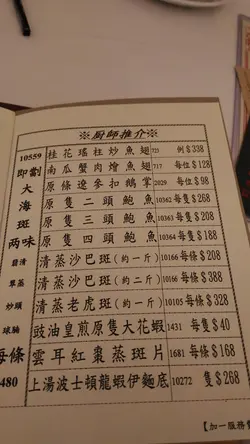 ※廚師推介※
10559 桂花瑤柱炒魚翅 723 例$338
即劏 南瓜蟹肉燴魚翅 717 每位$128
大 原條遼參扣鵝掌 2029 每位$98
海 原隻二頭鮑魚 10362 每隻$268
斑 原隻三頭鮑魚 10363 每隻$208
两味 原隻四頭鮑魚 10364 每隻$188
清蒸沙巴斑(約一斤) 10166 每條$208
清蒸沙巴斑(約二斤) 10166 每條$388
炒頭 清蒸老虎斑(約一斤) 10105 每條$328
球腩 豉油皇煎原隻大花蝦 1431 每隻$40
每條 雲耳紅棗蒸斑片 1681 每條$168
480 上湯波士頓龍蝦伊麵底 10272 隻$268
【加一服務